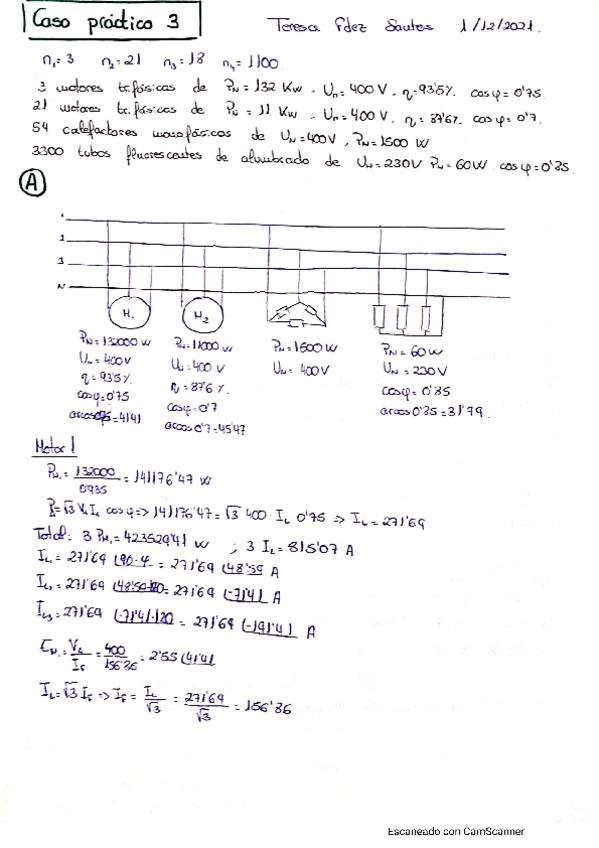 Caso práctico 3
Teresa Fdez Santos 1/12/2021.
n₁=3 n₂=21 n₃=18 n₄=1100
3 motores trifásicos de PN=132 Kw, Un=400V, η=93'5%. cosφ=0'75.
21 motores trifásicos de PN=11 Kw, Un=400V, η=87'6% cosφ=0'7.
54 calefactores monofásicos de UN=400V, PN=1500 W
3300 tubos fluorescentes de alumbrado de UN=230V PN=60W cosφ=0'85.
A
1
2
3
N
M₁ M₂
PN=132000 W PN=11000W PN=1500W PN=60W
Un=400V Un=400V UN=400V UN=230V
η=93'5% η=87'6% cosφ=0'85
cosφ=0'75 cosφ=0'7 arcos0'85=31'79.
arcos0'75=41'41 arcos0'7=45'47
Motor 1
PM₁=132000/0'935=141176'47 W
P=√3 VL IL cosφ=>141176'47=√3 400·IL 0'75 => IL=271'69
Total: 3 PM₁=423529'41 W ; 3 IL=815'07 A
IL₁=271'69 (90-φ = 271'69 (48'59 A
IL₂=271'69 (48'59-120=271'69 (-71'41 A
IL₃=271'69 (-71'41-120 = 271'69 (-191'41 A
=VL/If=400/156'86=2'55 (41'41
IL=√3 If => If=IL/√3=271'69/√3=156'86
Escaneado con CamScanner